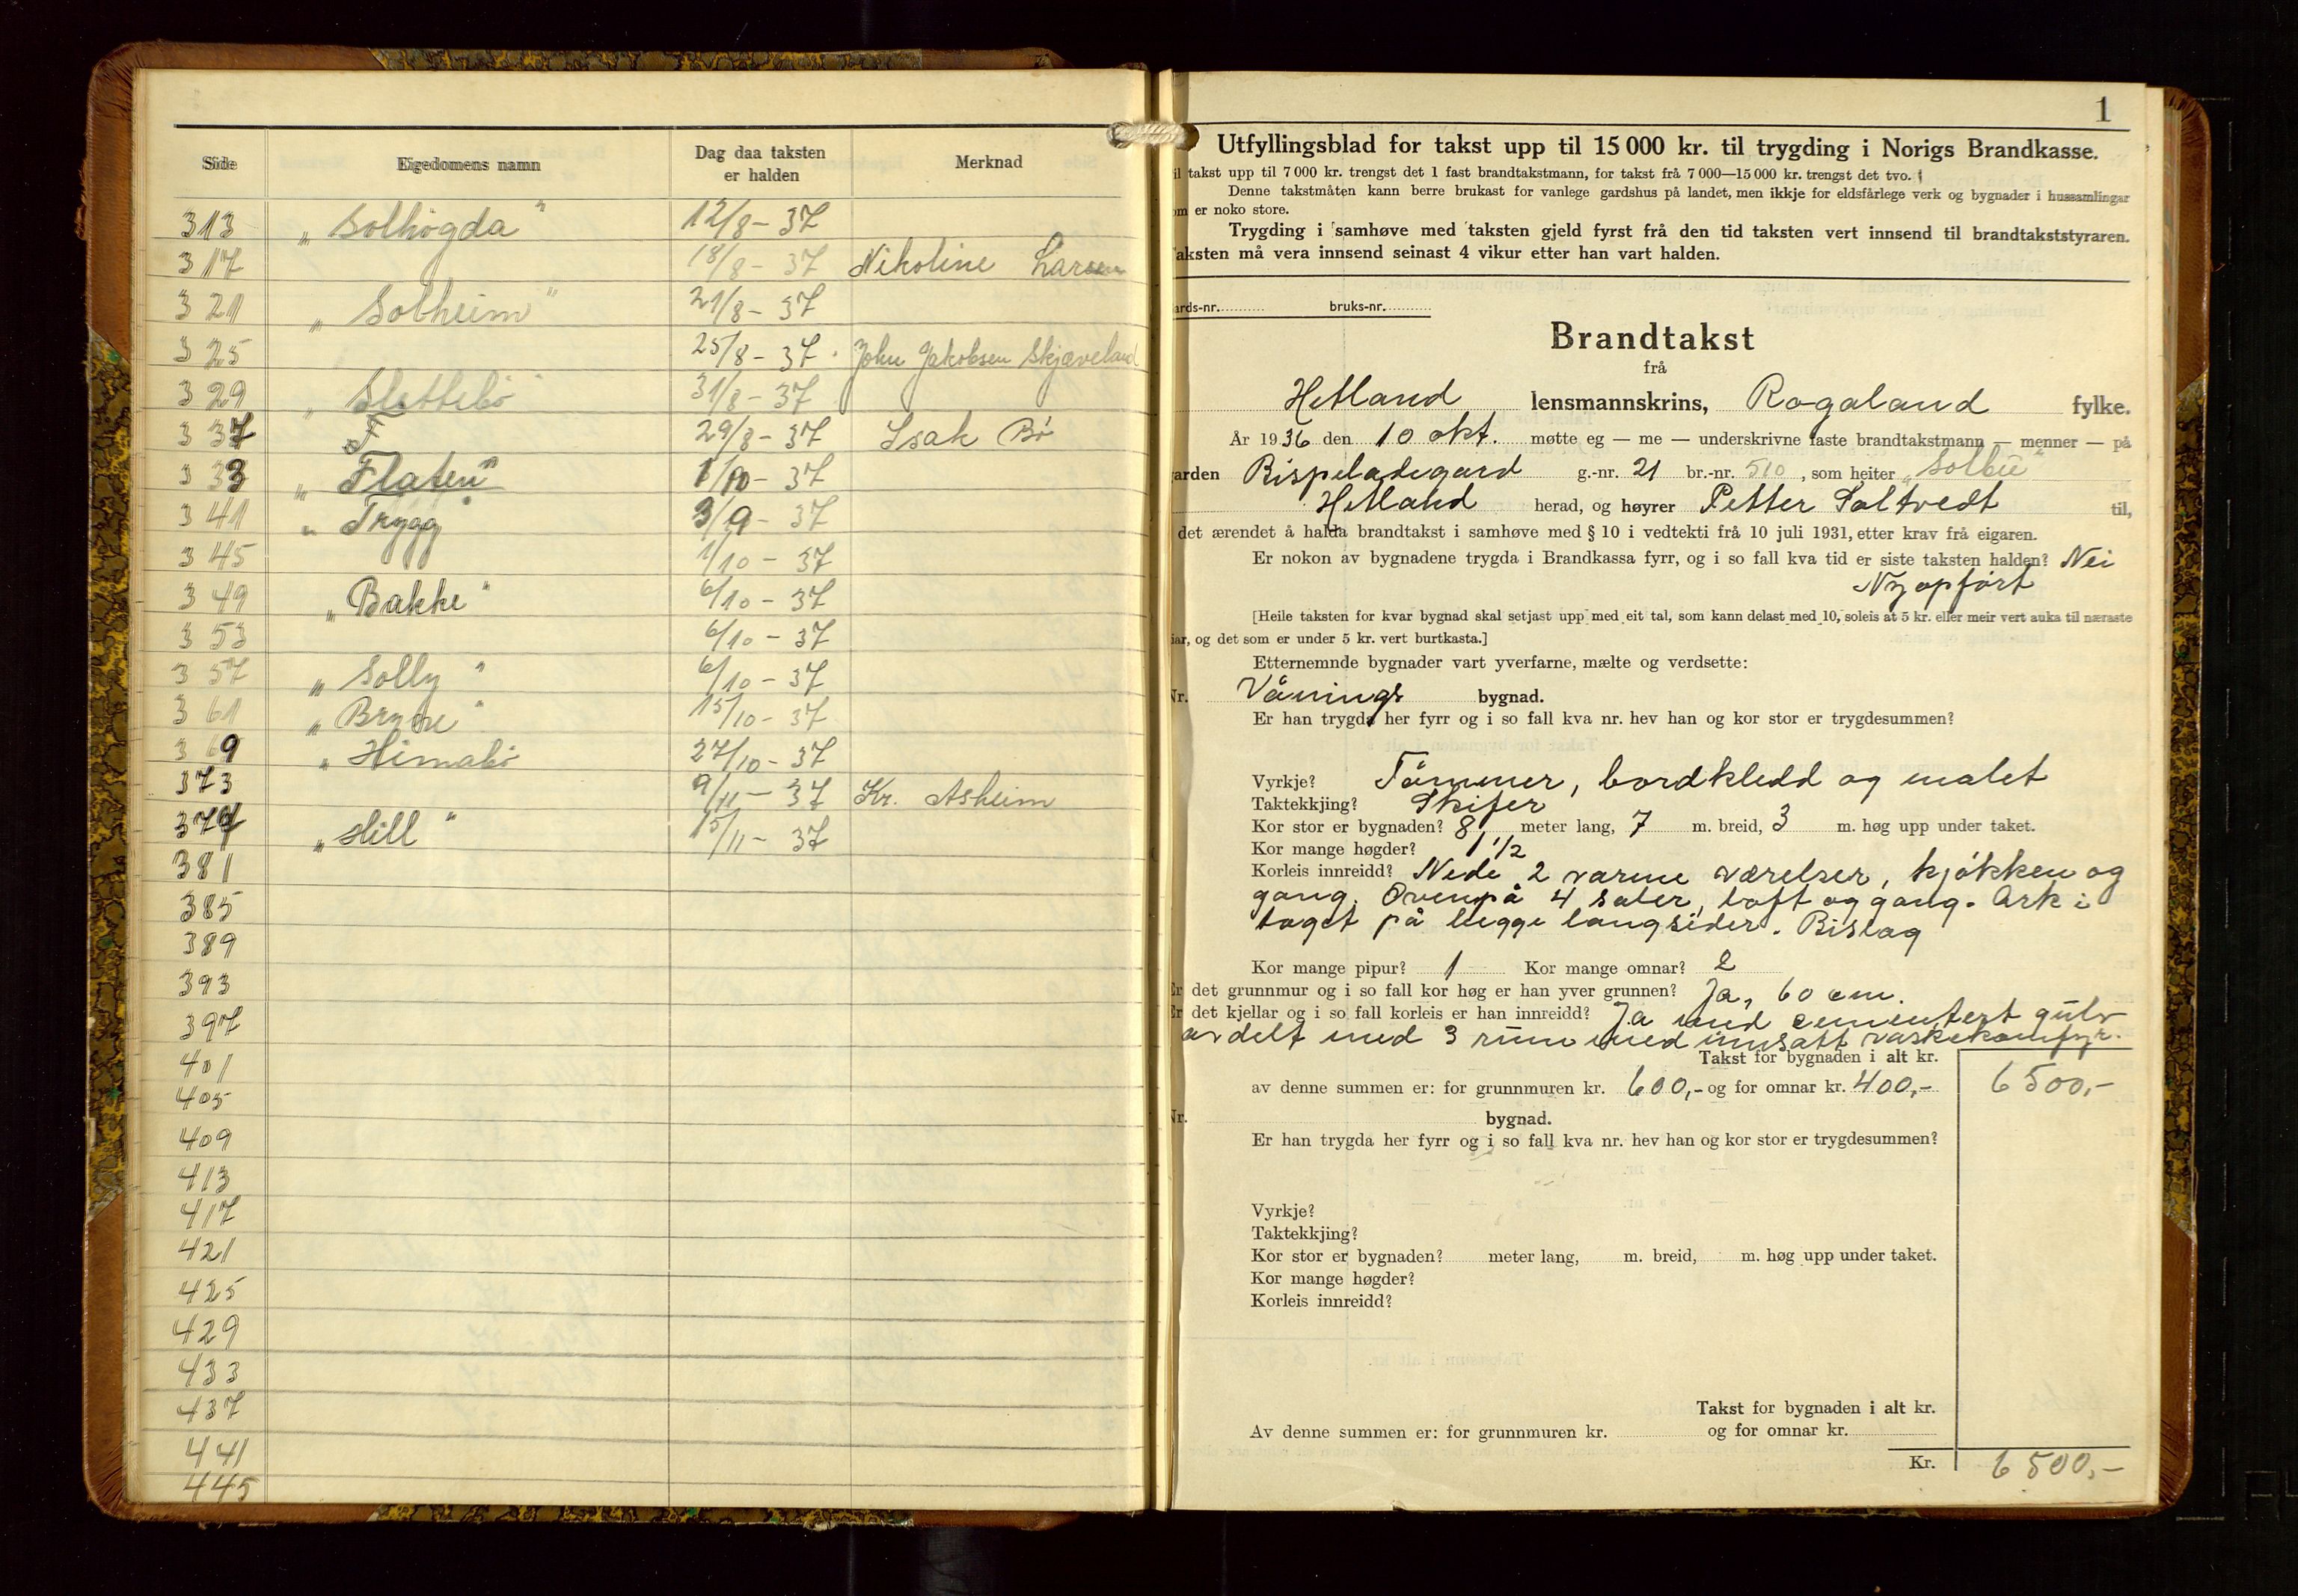 Side Eigedomens namn Dag daa taksten er halden Merknad
313 „Solhøgda" 12/8 - 37
317 18/8 - 37 Nikoline Larsen
321 „Solheim" 21/8 - 37
325 25/8 - 37. John Jakobsen Skjæveland
329 „Slettebø" 31/8 - 37
337 F 29/8 - 37 Isak Bø
333 „Flaten" 1/10 - 37
341 „Trygg" 3/9 - 37
345 1/10 - 37
349 „Bakke" 6/10 - 37
353 6/10 - 37
357 „Solly" 6/10 - 37
361 „Bryne" 15/10 - 37
369 „Himabø 27/10 - 37
373 9/11 - 37 Kr. Asheim
377 „Hill" 15/11 - 37
381
385
389
393
397
401
405
409
413
417
421
425
429
433
437
441
445
1
Utfyllingsblad for takst upp til 15 000 kr. til trygding i Norigs Brandkasse.
il takst upp til 7 000 kr. trengst det 1 fast brandtakstmann, for takst frå 7 000—15 000 kr. trengst det tvo.
Denne takstmåten kann berre brukast for vanlege gardshus på landet, men ikkje for eldsfårlege verk og bygnader i hussamlingar
om er noko store.
Trygding i samhøve med taksten gjeld fyrst frå den tid taksten vert innsend til brandtakststyraren.
aksten må vera innsend seinast 4 vikur etter han vart halden.
ards-nr. bruks-nr.
Brandtakst
frå
Hetland lensmannskrins, Rogaland fylke.
År 1936 den 10 okt. møtte eg — me — underskrivne faste brandtakstmann — menner — på
garden Bispeladegard g.-nr. 21 br.-nr. 510, som heiter „Solbu"
Hetland herad, og høyrer Petter Saltvedt til,
det ærendet å halda brandtakst i samhøve med § 10 i vedtekti frå 10 juli 1931, etter krav frå eigaren.
Er nokon av bygnadene trygda i Brandkassa fyrr, og i so fall kva tid er siste taksten halden? Nei
Nyopført
[Heile taksten for kvar bygnad skal setjast upp med eit tal, som kann delast med 10, soleis at 5 kr. eller meir vert auka til næraste
iar, og det som er under 5 kr. vert burtkasta.]
Etternemnde bygnader vart yverfarne, mælte og verdsette:
Nr. Vånings bygnad.
Er han trygda her fyrr og i so fall kva nr. hev han og kor stor er trygdesummen?
Vyrkje? Tømmer, bordkledd og malet
Taktekkjing? Skifer
Kor stor er bygnaden? 8 meter lang, 7 m. breid, 3 m. høg upp under taket.
Kor mange høgder? 1 1/2
Korleis innreidd? Nede 2 varme værelser, kjøkken og
gang. Ovenpå 4 saler, loft og gang. Ark i
taget på begge langsider. Bislag
Kor mange pipur? 1 Kor mange omnar? 2
Er det grunnmur og i so fall kor høg er han yver grunnen? Ja, 60 cm.
Er det kjellar og i so fall korleis er han innreidd? Ja med cementert gulv
avdelt med 3 rum med innsatt vaskekomfyr.
Takst for bygnaden i alt kr.
av denne summen er: for grunnmuren kr. 600,- og for omnar kr. 400,- 6500,-
Nr. bygnad.
Er han trygda her fyrr og i so fall kva nr. hev han og kor stor er trygdesummen?
Vyrkje?
Taktekkjing?
Kor stor er bygnaden? meter lang, m. breid, m. høg upp under taket.
Kor mange høgder?
Korleis innreidd?
Takst for bygnaden i alt kr.
Av denne summen er: for grunnmuren kr. og for omnar kr.
Kr. 6500,-